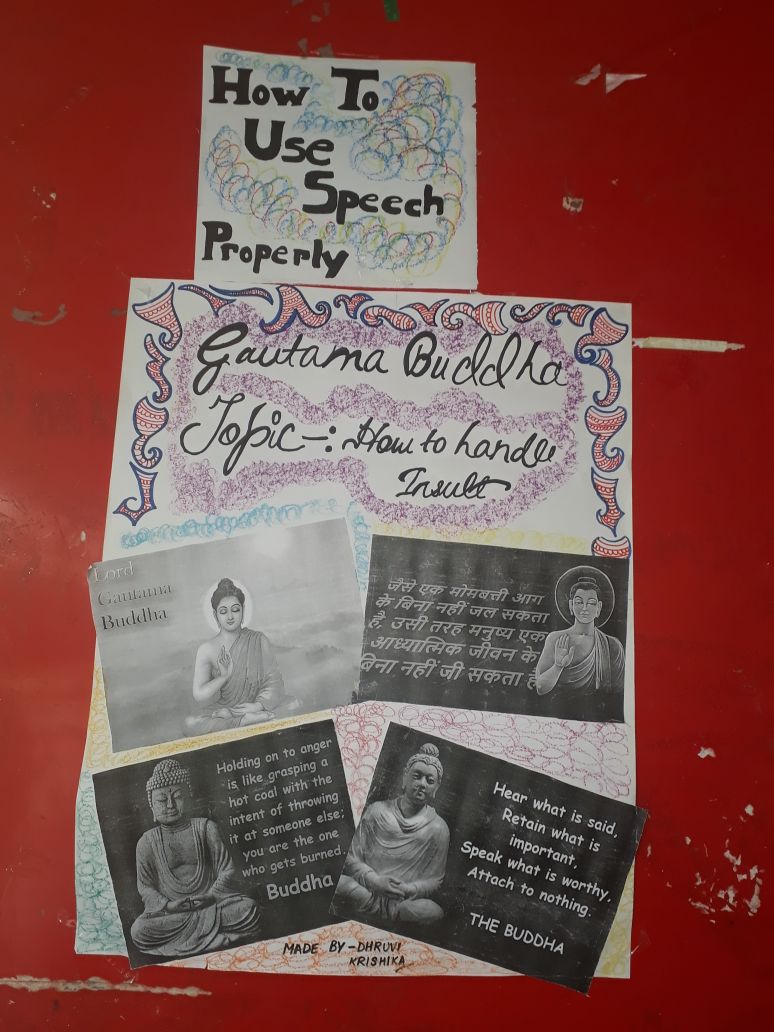 How To
Use
Speech
Properly
Gautama Buddha
Topic-: How to handle
Insult
Lord
Gautama
Buddha
जैसे एक मोमबत्ती आग
के बिना नहीं जल सकता
है, उसी तरह मनुष्य एक
आध्यात्मिक जीवन के
बिना नहीं जी सकता है
Holding on to anger
is like grasping a
hot coal with the
intent of throwing
it at someone else;
you are the one
who gets burned.
Buddha
Hear what is said,
Retain what is
important,
Speak what is worthy,
Attach to nothing.
THE BUDDHA
MADE BY-DHRUVI
KRISHIKA